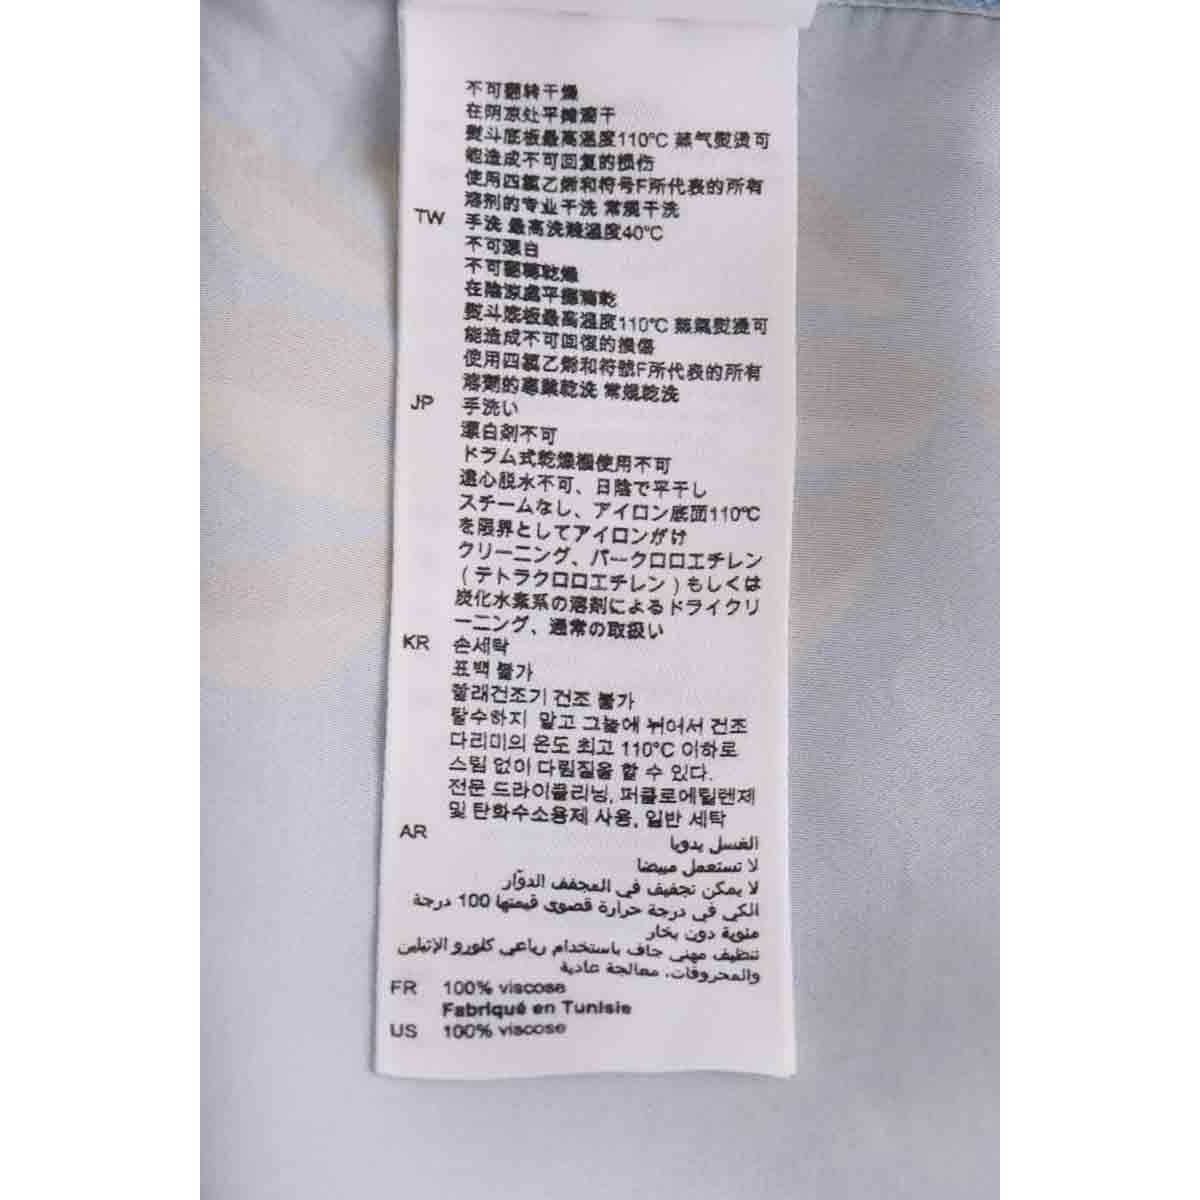 不可翻转干燥
在阴凉处平摊滴干
熨斗底板最高温度110°C 蒸气熨烫可
能造成不可回复的损伤
使用四氯乙烯和符号F所代表的所有
溶剂的专业干洗 常规干洗
TW 手洗 最高洗滌溫度40°C
不可漂白
不可翻轉乾燥
在陰涼處平攤滴乾
熨斗底板最高溫度110°C 蒸氣熨燙可
能造成不可回復的損傷
使用四氯乙烯和符號F所代表的所有
溶劑的專業乾洗 常規乾洗
JP 手洗い
漂白剤不可
ドラム式乾燥機使用不可
遠心脱水不可、日陰で平干し
スチームなし、アイロン底面110°C
を限界としてアイロンがけ
クリーニング、パークロロエチレン
(テトラクロロエチレン)もしくは
炭化水素系の溶剤によるドライクリ
ーニング、通常の取扱い
KR 손세탁
표백 불가
할래건조기 건조 불가
탈수하지 말고 그늘에 뉘어서 건조
다리미의 온도 최고 110°C 이하로
스팀 없이 다림질을 할 수 있다.
전문 드라이클리닝, 퍼클로에틸렌제
및 탄화수소용제 사용, 일반 세탁
AR الغسل يدويا
لا تستعمل مبيضا
لا يمكن تجفيف في المجفف الدوّار
الكي في درجة حرارة قصوى قيمتها 100 درجة
مئوية دون بخار
تنظيف مهني جاف باستخدام رباعي كلورو الإثيلين
والمحروقات، معالجة عادية
FR 100% viscose
Fabriqué en Tunisie
US 100% viscose